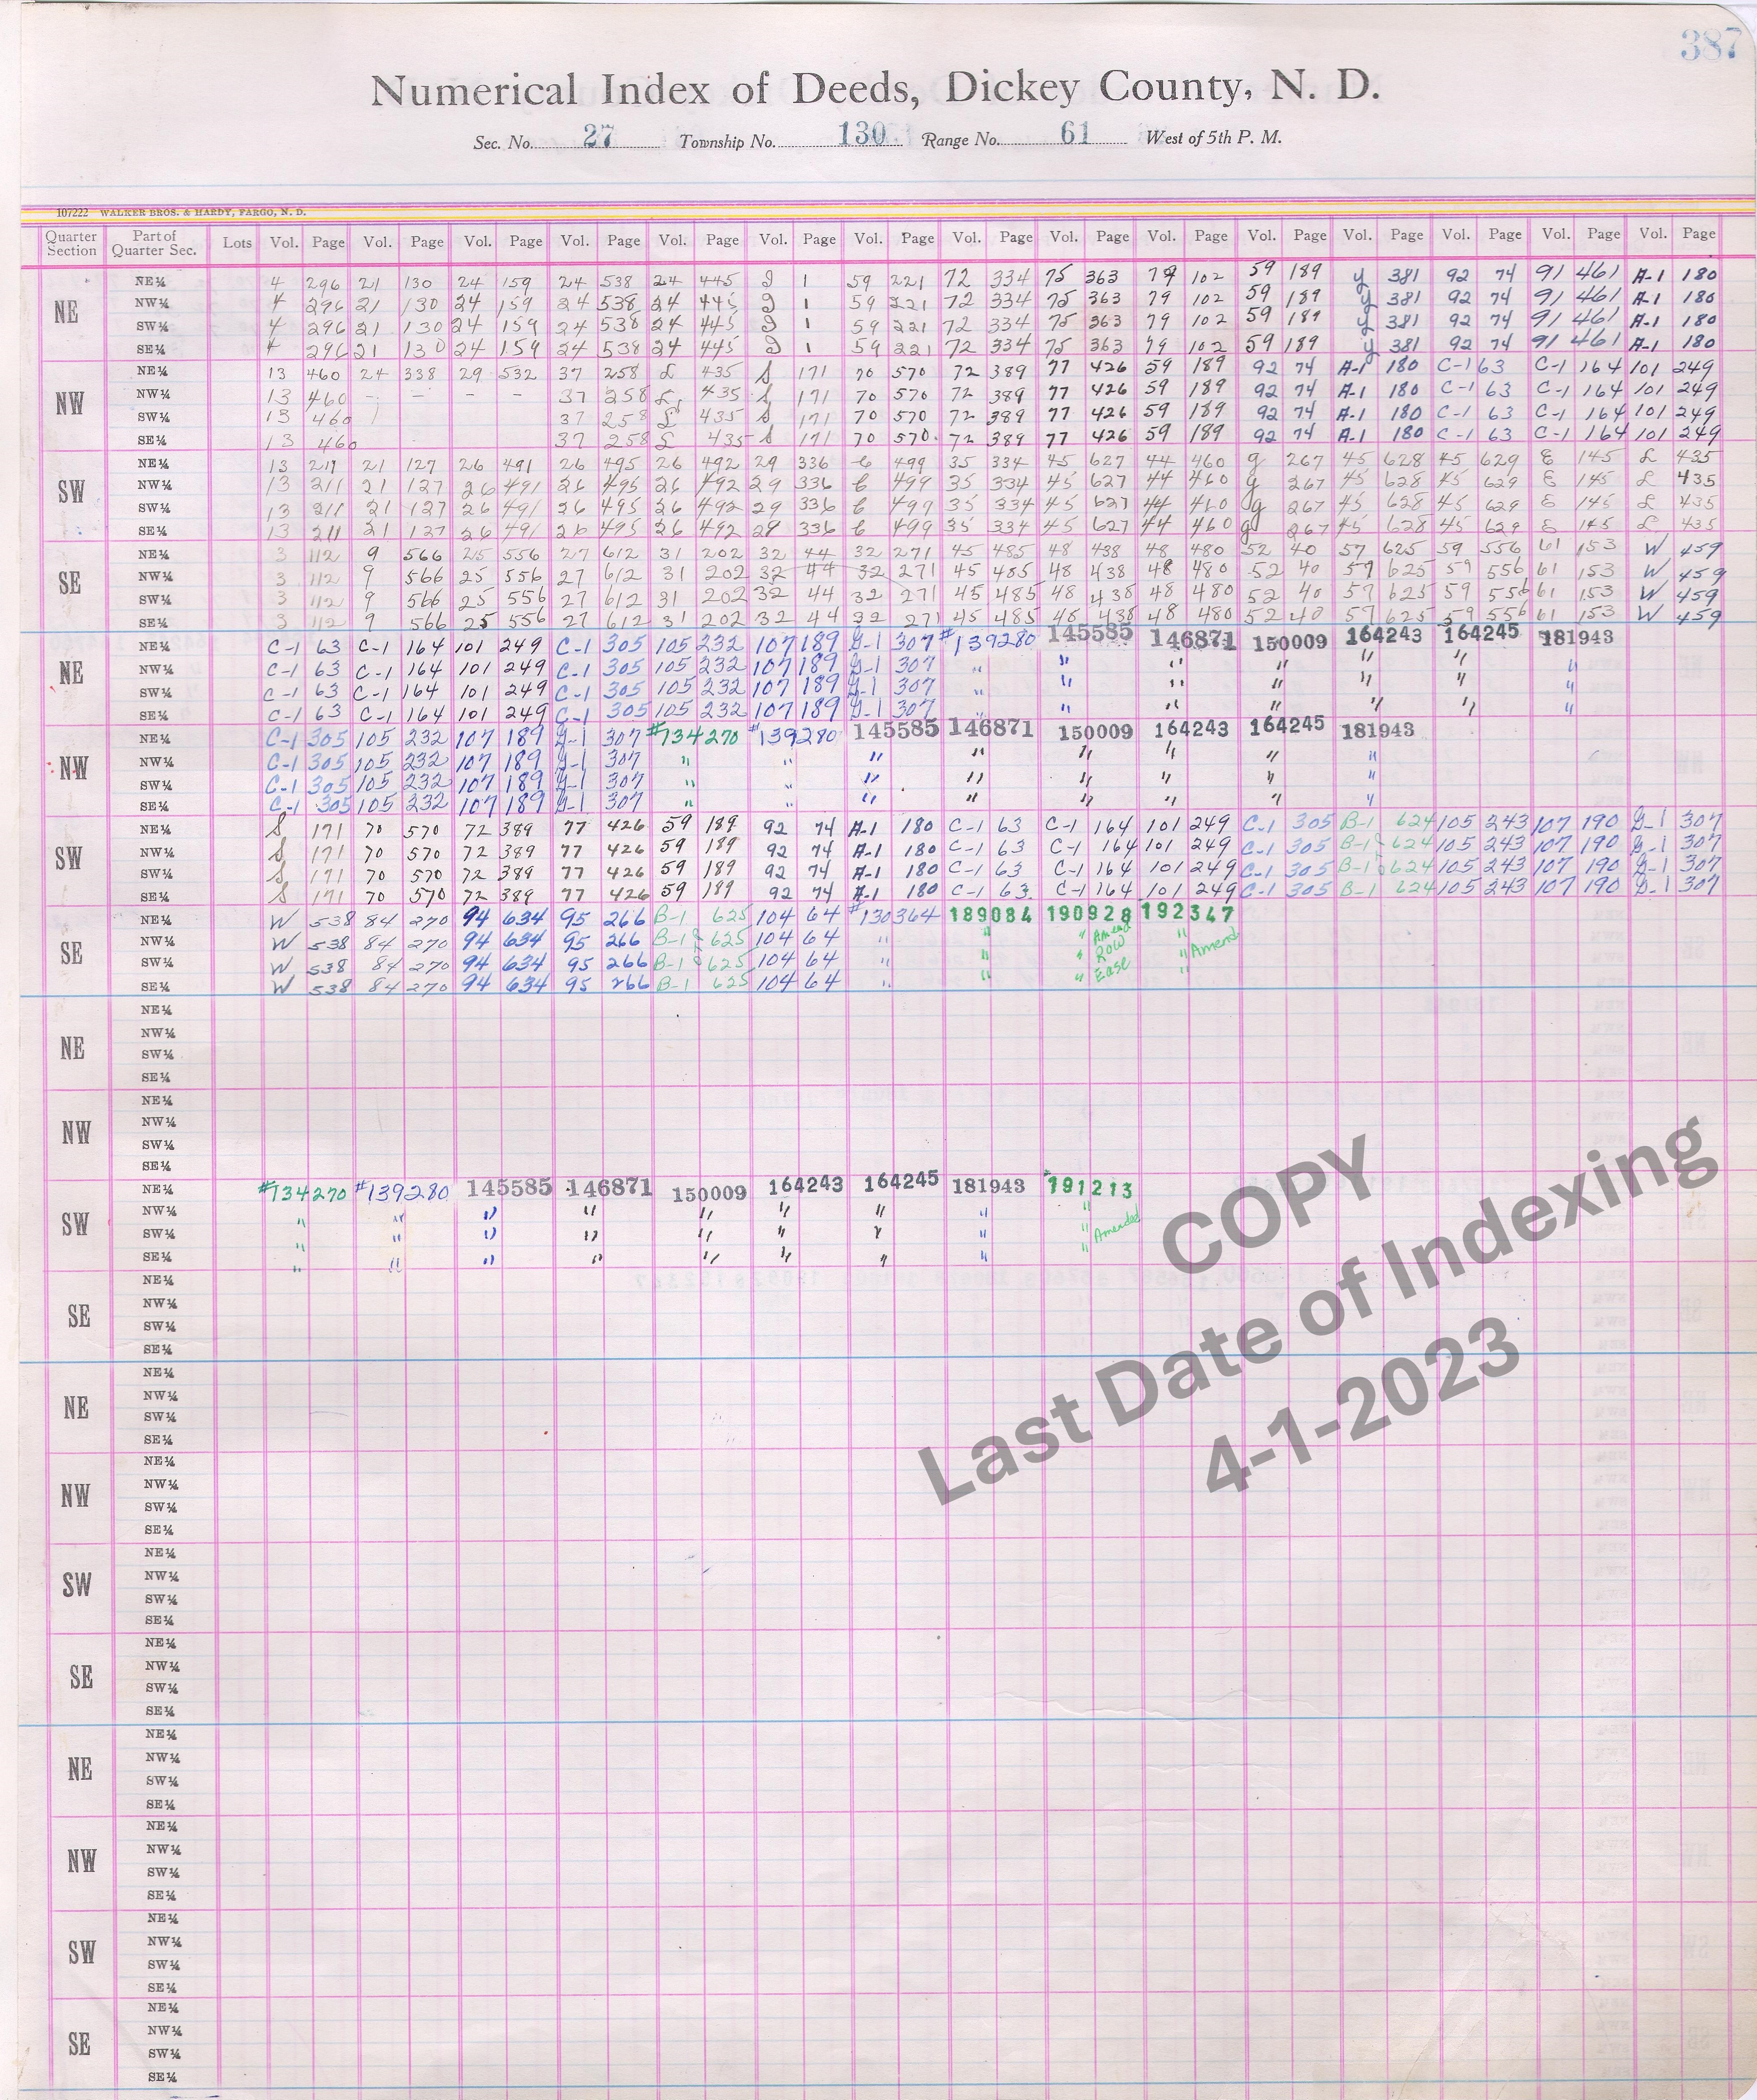 387
Numerical Index of Deeds, Dickey County, N. D.
Sec. No. 27 Township No. 130 Range No. 61 West of 5th P. M.
107222 WALKER BROS. & HARDY, FARGO, N. D.
Quarter Section Part of Quarter Sec. Lots Vol. Page Vol. Page Vol. Page Vol. Page Vol. Page Vol. Page Vol. Page Vol. Page Vol. Page Vol. Page Vol. Page Vol. Page Vol. Page Vol. Page Vol. Page
NE
NE¼ 4 296 21 130 24 159 24 538 24 445 1 59 221 72 334 75 363 79 102 59 189 y 381 92 74 91 461 A-1 180
NW¼ 4 296 21 130 24 159 24 538 24 445 1 59 221 72 334 75 363 79 102 59 189 y 381 92 74 91 461 A-1 180
SW¼ 4 296 21 130 24 159 24 538 24 445 1 59 221 72 334 75 363 79 102 59 189 y 381 92 74 91 461 A-1 180
SE¼ 4 296 21 130 24 159 24 538 24 445 1 59 221 72 334 75 363 79 102 59 189 y 381 92 74 91 461 A-1 180
NW
NE¼ 13 460 24 338 29 532 37 258 L 435 S 171 70 570 72 389 77 426 59 189 92 74 A-1 180 C-1 63 C-1 164 101 249
NW¼ 13 460 - - - - 37 258 L 435 S 171 70 570 72 389 77 426 59 189 92 74 A-1 180 C-1 63 C-1 164 101 249
SW¼ 13 460 37 258 L 435 S 171 70 570 72 389 77 426 59 189 92 74 A-1 180 C-1 63 C-1 164 101 249
SE¼ 13 460 37 258 L 435 S 171 70 570 72 389 77 426 59 189 92 74 A-1 180 C-1 63 C-1 164 101 249
SW
NE¼ 13 211 21 127 26 491 26 495 26 492 29 336 499 35 334 45 627 44 460 g 267 45 628 45 629 E 145 L 435
NW¼ 13 211 21 127 26 491 26 495 26 492 29 336 499 35 334 45 627 44 460 g 267 45 628 45 629 E 145 L 435
SW¼ 13 211 21 127 26 491 26 495 26 492 29 336 499 35 334 45 627 44 460 g 267 45 628 45 629 E 145 L 435
SE¼ 13 211 21 127 26 491 26 495 26 492 29 336 499 35 334 45 627 44 460 g 267 45 628 45 629 E 145 L 435
SE
NE¼ 3 112 9 566 25 556 27 612 31 202 32 44 32 271 45 485 48 438 48 480 52 40 57 625 59 556 61 153 W 459
NW¼ 3 112 9 566 25 556 27 612 31 202 32 44 32 271 45 485 48 438 48 480 52 40 57 625 59 556 61 153 W 459
SW¼ 3 112 9 566 25 556 27 612 31 202 32 44 32 271 45 485 48 438 48 480 52 40 57 625 59 556 61 153 W 459
SE¼ 3 112 9 566 25 556 27 612 31 202 32 44 32 271 45 485 48 438 48 480 52 40 57 625 59 556 61 153 W 459
NE
NE¼ C-1 63 C-1 164 101 249 C-1 305 105 232 107 189 G-1 307 #139280 145585 146871 150009 164243 164245 181943
NW¼ C-1 63 C-1 164 101 249 C-1 305 105 232 107 189 G-1 307 " " " " " " "
SW¼ C-1 63 C-1 164 101 249 C-1 305 105 232 107 189 G-1 307 " " " " " " "
SE¼ C-1 63 C-1 164 101 249 C-1 305 105 232 107 189 G-1 307 " " " " " " "
NW
NE¼ C-1 305 105 232 107 189 G-1 307 #134270 #139280 145585 146871 150009 164243 164245 181943
NW¼ C-1 305 105 232 107 189 G-1 307 " " " " " " " "
SW¼ C-1 305 105 232 107 189 G-1 307 " " " " " " " "
SE¼ C-1 305 105 232 107 189 G-1 307 " " " " " " " "
SW
NE¼ S 171 70 570 72 389 77 426 59 189 92 74 A-1 180 C-1 63 C-1 164 101 249 C-1 305 B-1 624 105 243 107 190 G-1 307
NW¼ S 171 70 570 72 389 77 426 59 189 92 74 A-1 180 C-1 63 C-1 164 101 249 C-1 305 B-1 624 105 243 107 190 G-1 307
SW¼ S 171 70 570 72 389 77 426 59 189 92 74 A-1 180 C-1 63 C-1 164 101 249 C-1 305 B-1 624 105 243 107 190 G-1 307
SE¼ S 171 70 570 72 389 77 426 59 189 92 74 A-1 180 C-1 63 C-1 164 101 249 C-1 305 B-1 624 105 243 107 190 G-1 307
SE
NE¼ W 538 84 270 94 634 95 266 B-1 625 104 64 #130364 189084 190928 192347
NW¼ W 538 84 270 94 634 95 266 B-1 625 104 64 " " " Amend "
SW¼ W 538 84 270 94 634 95 266 B-1 625 104 64 " " " Row " Amend
SE¼ W 538 84 270 94 634 95 266 B-1 625 104 64 " " " Ease "
NE
NE¼
NW¼
SW¼
SE¼
NW
NE¼
NW¼
SW¼
SE¼
SW
NE¼ #134270 #139280 145585 146871 150009 164243 164245 181943 191213
NW¼ " " " " " " " " "
SW¼ " " " " " " " " " Amended
SE¼ " " " " " " " " "
SE
NE¼
NW¼
SW¼
SE¼
NE
NE¼
NW¼
SW¼
SE¼
NW
NE¼
NW¼
SW¼
SE¼
SW
NE¼
NW¼
SW¼
SE¼
SE
NE¼
NW¼
SW¼
SE¼
NE
NE¼
NW¼
SW¼
SE¼
NW
NE¼
NW¼
SW¼
SE¼
SW
NE¼
NW¼
SW¼
SE¼
SE
NE¼
NW¼
SW¼
SE¼
COPY
Last Date of Indexing
4-1-2023